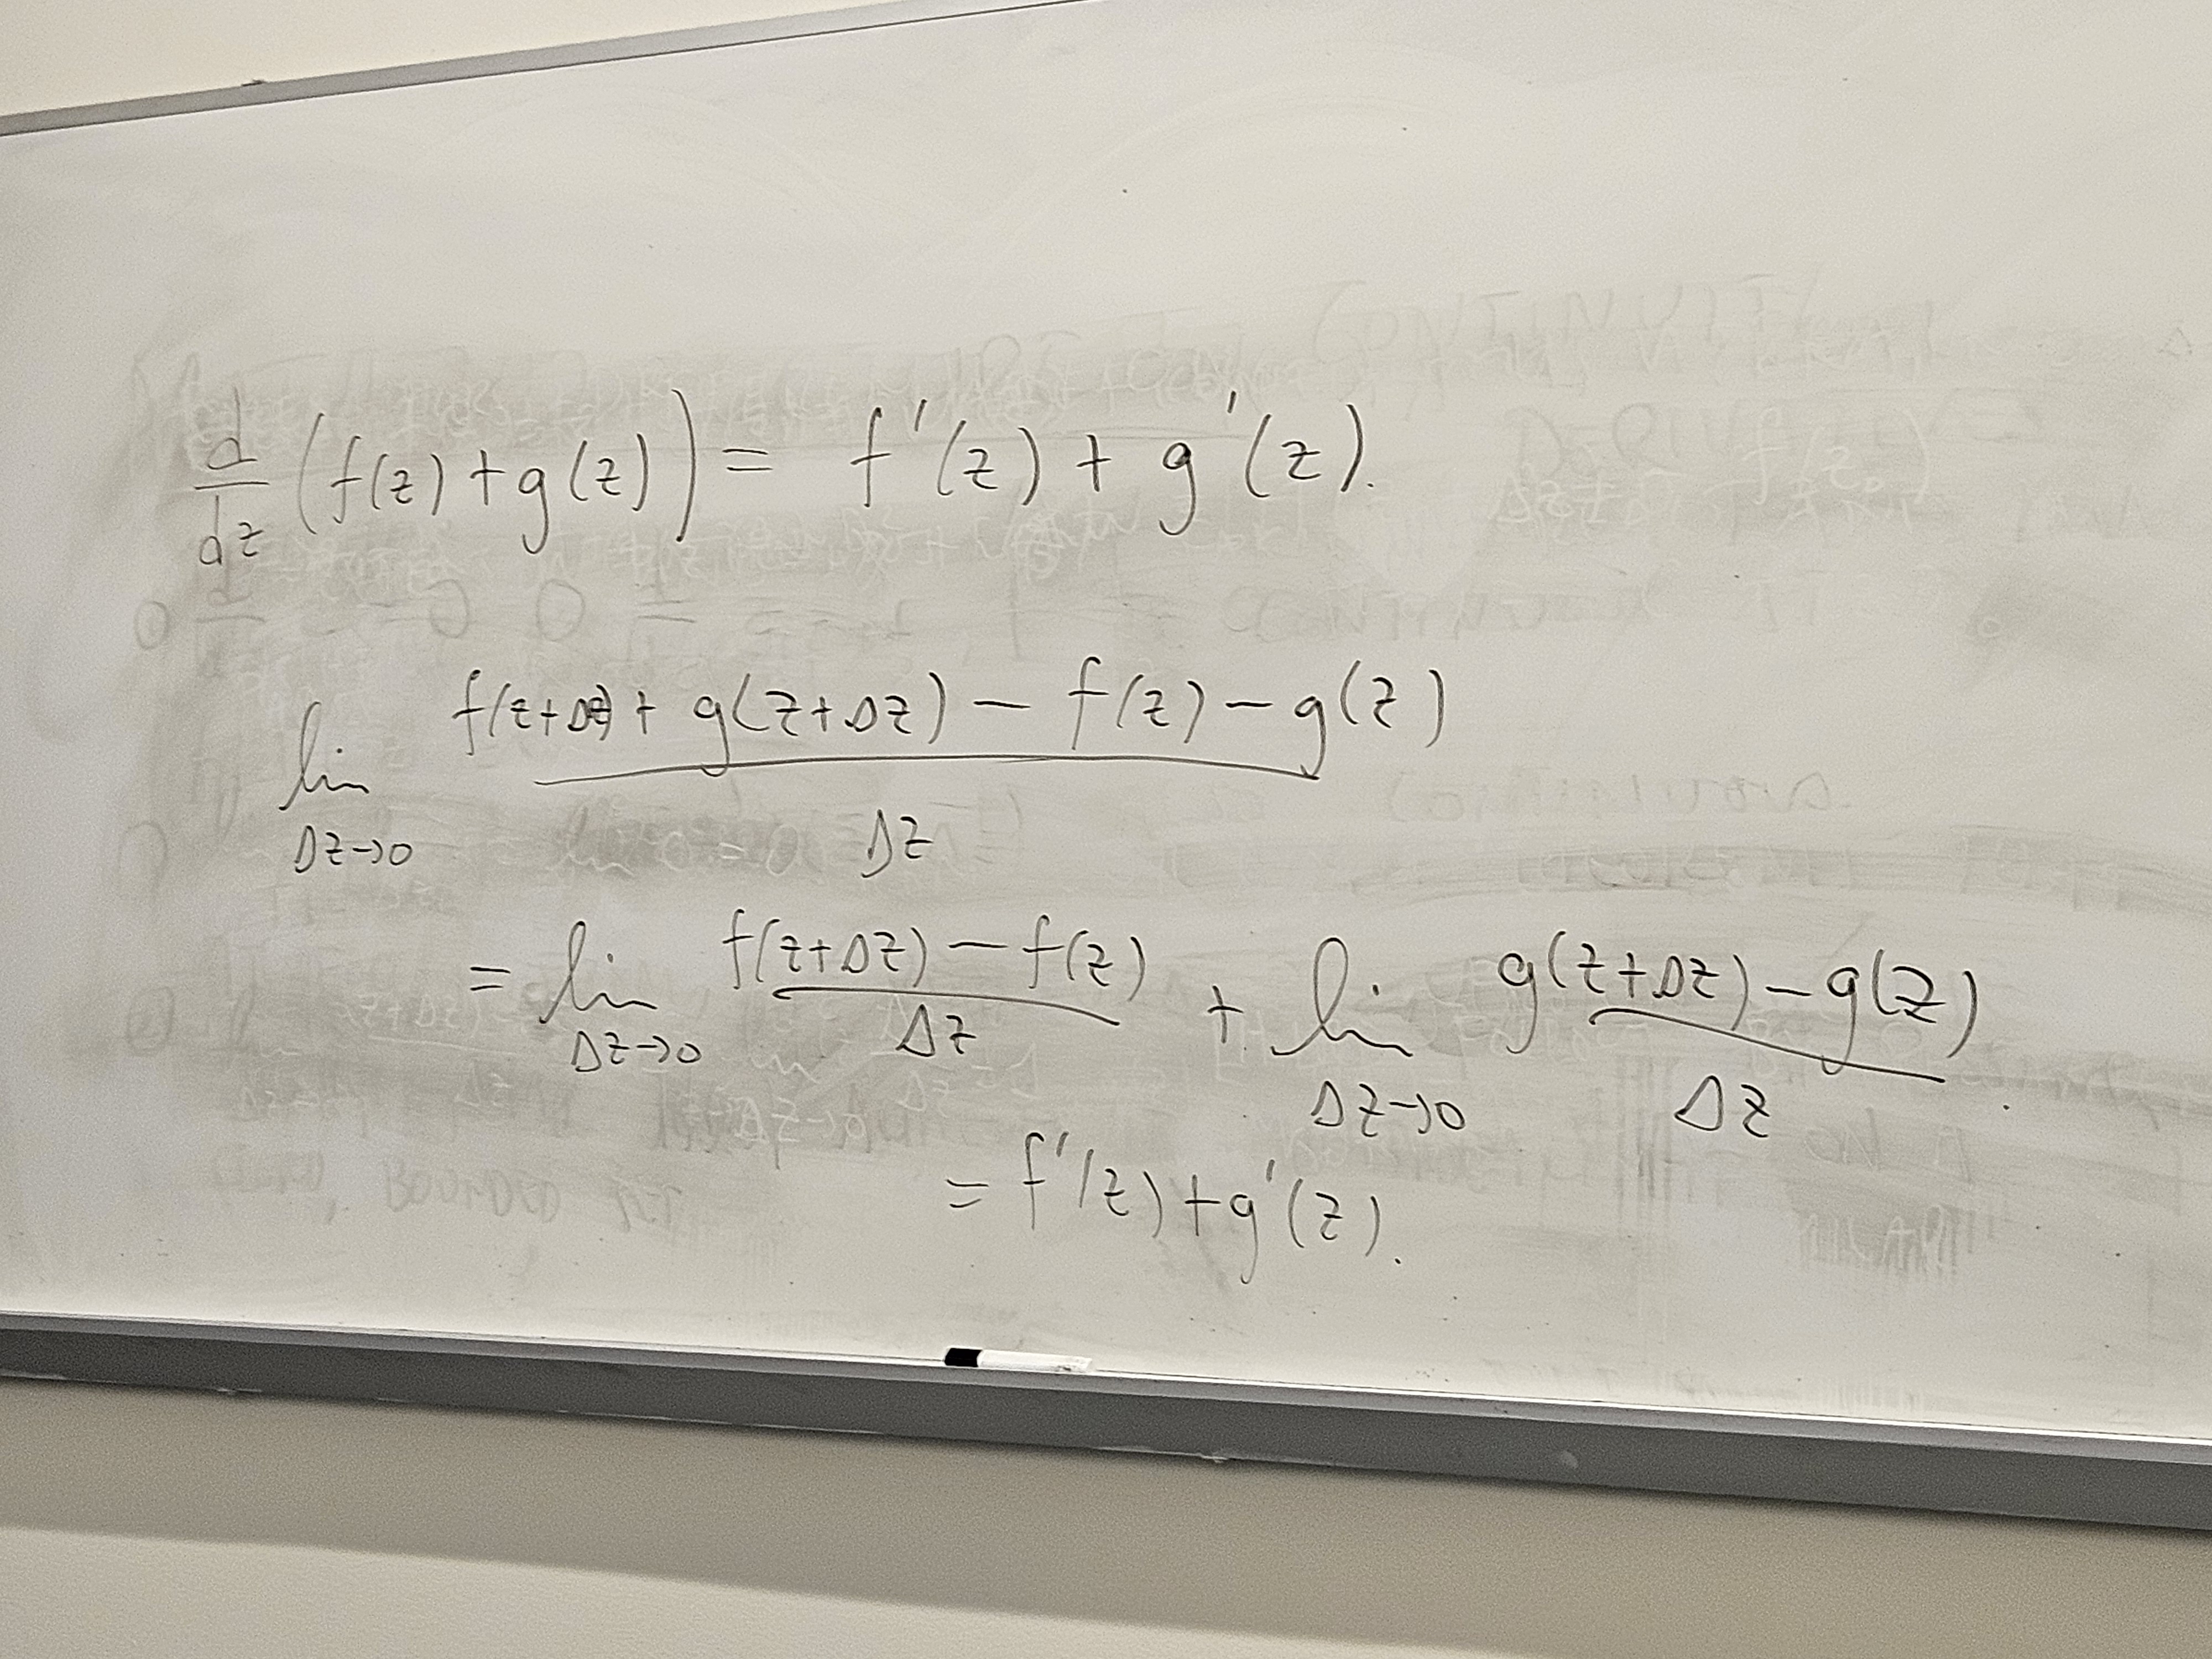 d/dz (f(z) + g(z)) = f'(z) + g'(z).
lim Δz→0 f(z+Δz) + g(z+Δz) − f(z) − g(z) / Δz
= lim Δz→0 f(z+Δz) − f(z) / Δz + lim Δz→0 g(z+Δz) − g(z) / Δz
= f'(z) + g'(z).